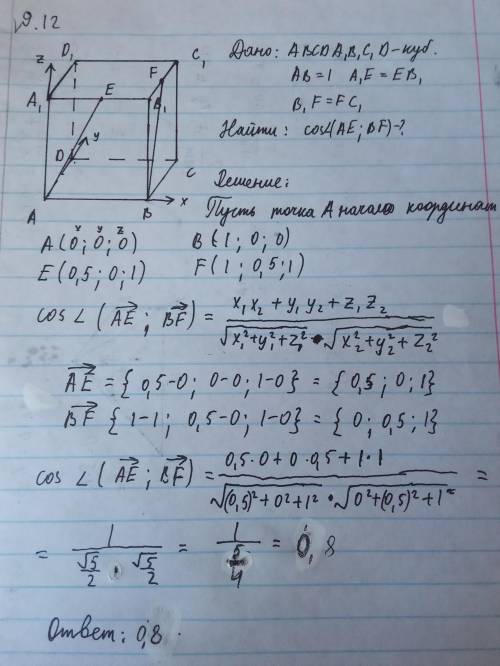 №9.12
Дано: ABCDA₁B₁C₁D - куб.
AB=1 A₁E = EB₁
B₁F = FC₁
Найти: cos∠(AE; BF)-?
Решение:
Пусть точка A начало координат
z D₁ C₁
F
A₁ E B₁
y
D C
A B x
x y z
A(0; 0; 0) B(1; 0; 0)
E(0,5; 0; 1) F(1; 0,5; 1)
cos∠(AE; BF) = (x₁x₂ + y₁y₂ + z₁z₂) / (√(x₁²+y₁²+z₁²) · √(x₂²+y₂²+z₂²))
AE = {0,5-0; 0-0; 1-0} = {0,5; 0; 1}
BF {1-1; 0,5-0; 1-0} = {0; 0,5; 1}
cos∠(AE; BF) = (0,5·0+0·0,5+1·1) / (√((0,5)²+0²+1²) · √(0²+(0,5)²+1²)) =
= 1 / (√5/2 · √5/2) = 1 / (5/4) = 0,8
Ответ: 0,8.